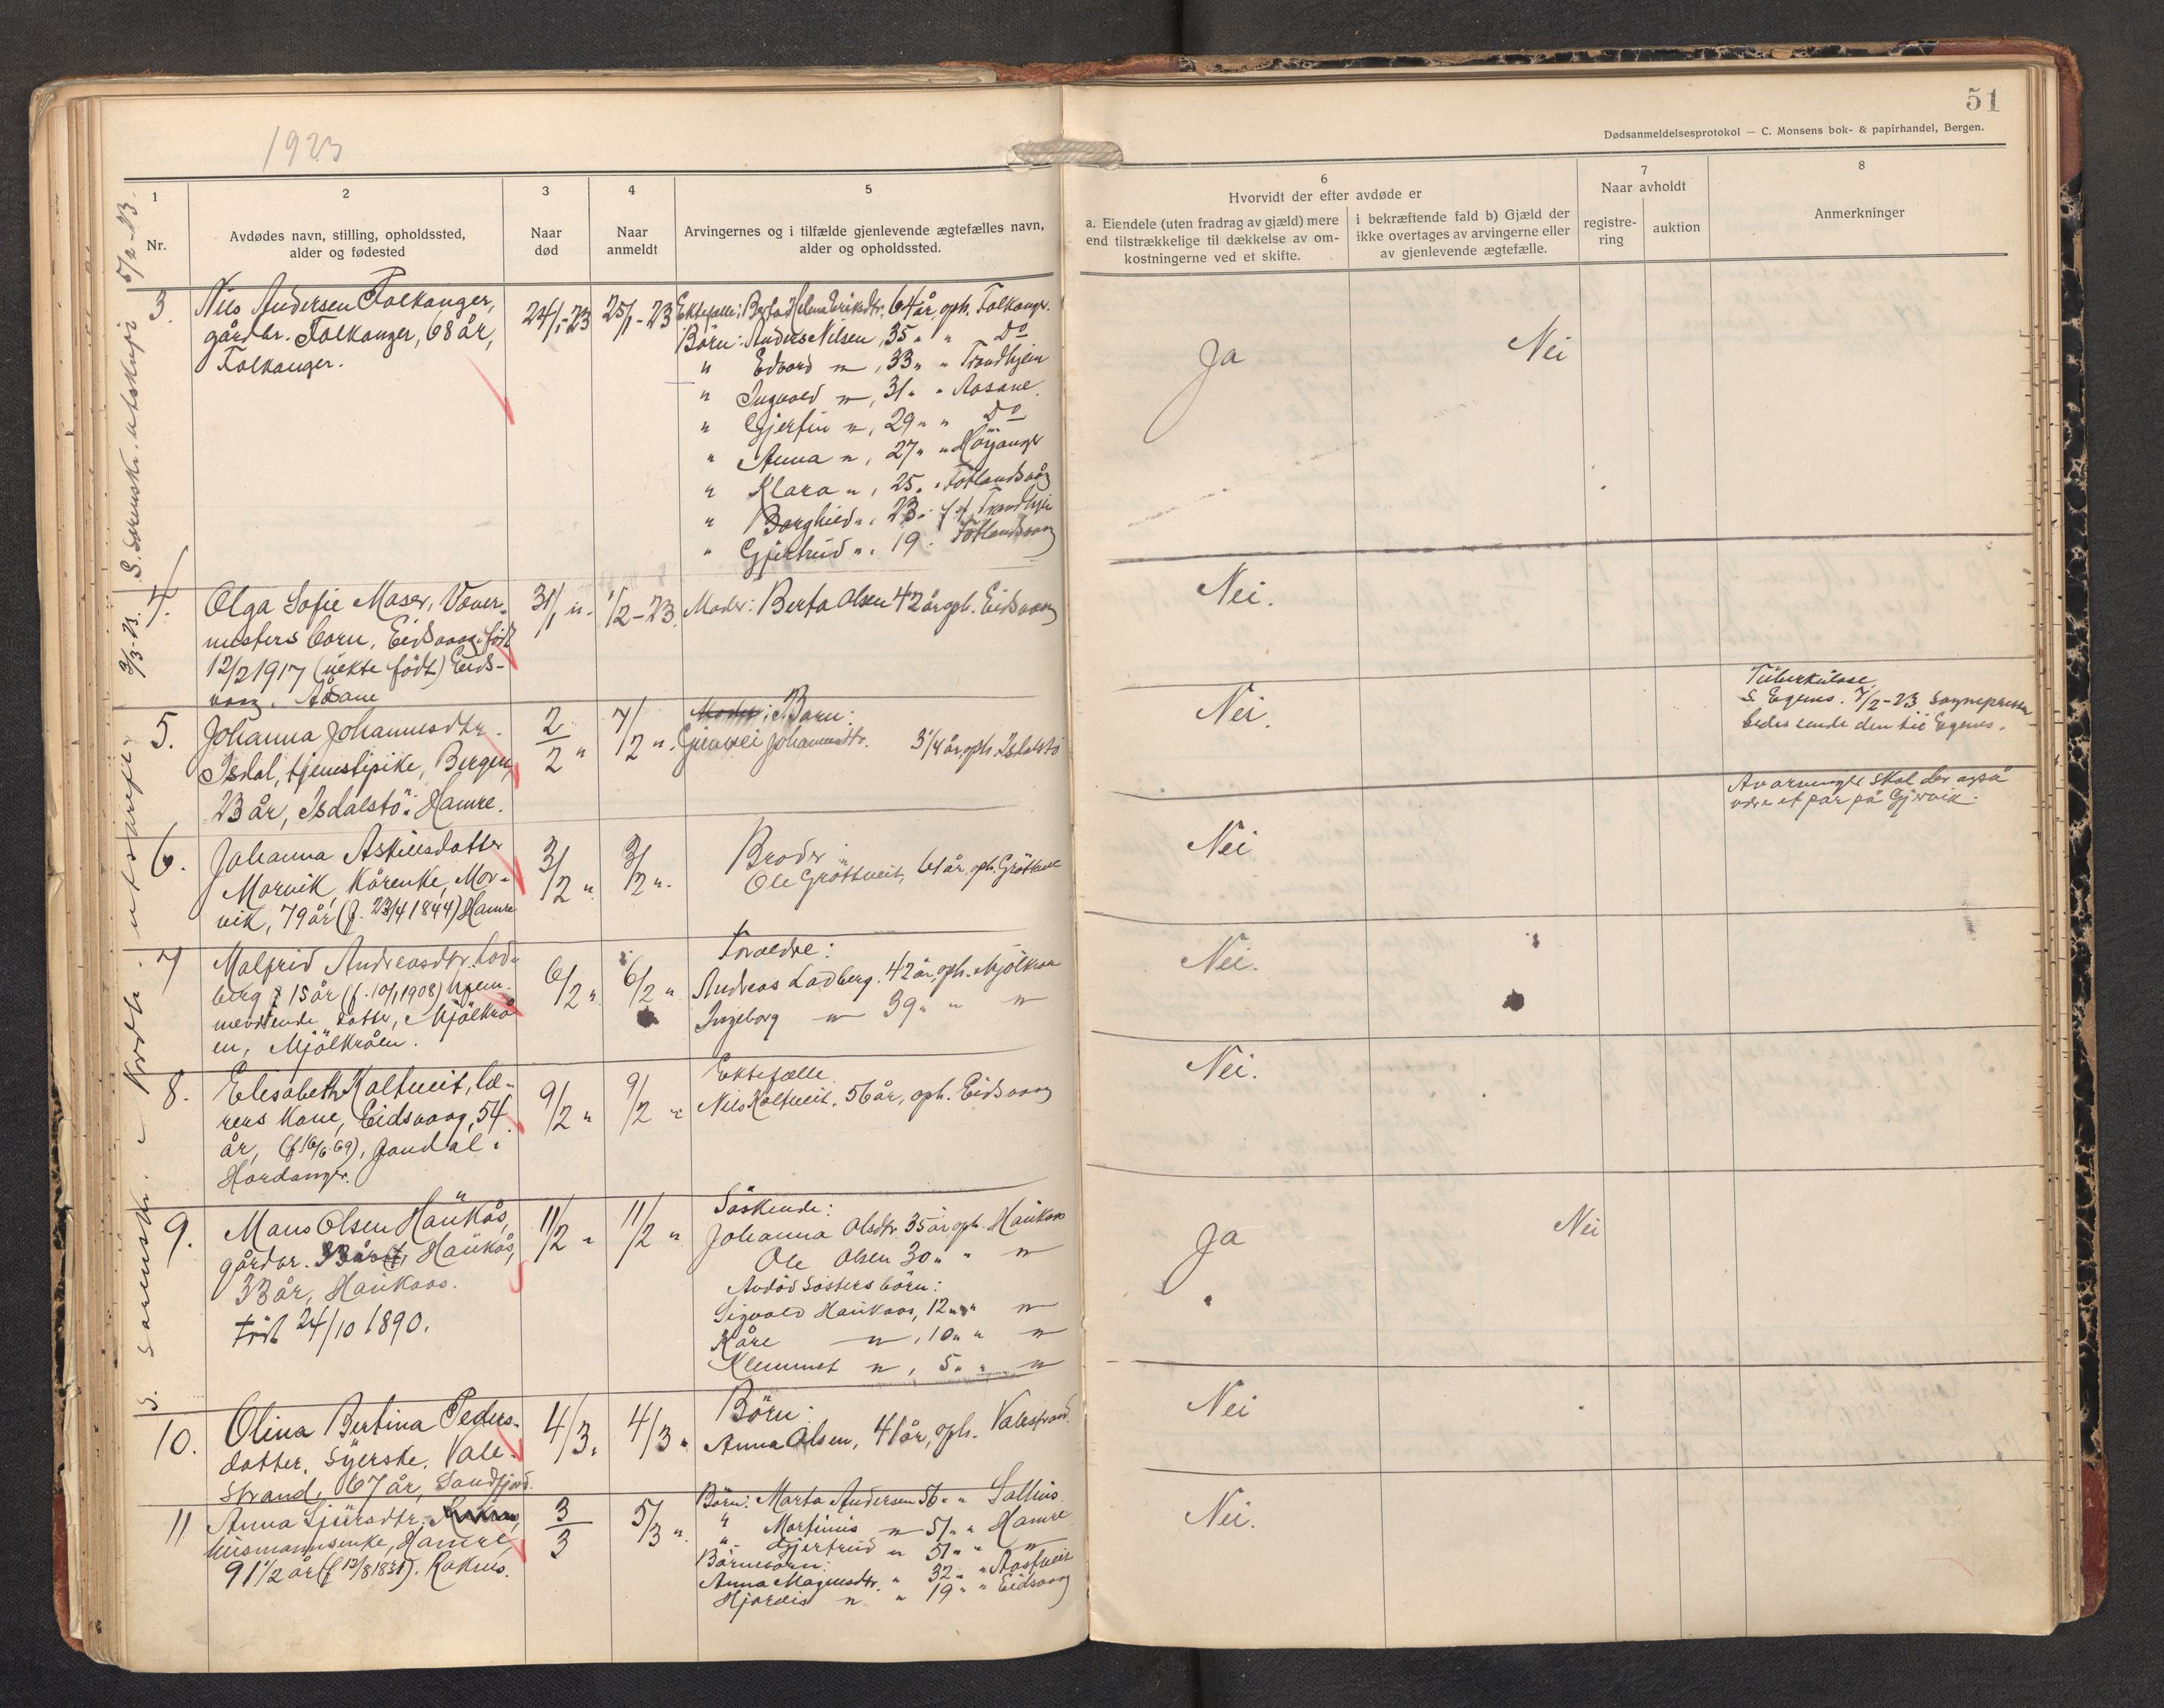 1923
51
Dødsanmeldelsesprotokol — C. Monsens bok- & papirhandel, Bergen.
1
Nr.
2
Avdødes navn, stilling, opholdssted,
alder og fødested
3
Naar
død
4
Naar
anmeldt
5
Arvingernes og i tilfælde gjenlevende ægtefælles navn,
alder og opholdssted.
6
Hvorvidt der efter avdøde er
a. Eiendele (uten fradrag av gjæld) mere
end tilstrækkelige til dækkelse av om-
kostningerne ved et skifte.
i bekræftende fald b) Gjæld der
ikke overtages av arvingerne eller
av gjenlevende ægtefælle.
7
Naar avholdt
registre-
ring
auktion
8
Anmerkninger
3.
Nils Andersen Falkanger,
gårdbr. Falkanger, 68 år,
Falkanger.
24/1-23
25/1-23
Ektefælle: Berta Helena Eriksdtr. 64 år, oph. Falkangr.
Börn: Anders Nilsen, 35 " " Do
" Edvard " , 33 " " Trondhjem
" Ingvald " , 31 " " Aasane.
" Gjerfin " , 29 " " Do
" Anna " , 27 " " Höyangr
" Klara " , 25 " " Fotlandsvåg
" Borghild " , 23 " Trondhjem
" Gjertrud " , 19 " Fotlandsvaag
Ja
Nei
4.
Olga Sofie Maser, Væver-
mesters barn, Eidsvaag, född
12/2 1917 (uekte född) Eids-
vaag, Åsane
31/1 "
1/2-23.
Moder: Berta Olsen 42 år oph. Eidsvaag
Nei.
5.
Johanna Johannesdtr.
Isdal, tjenestepike, Bergen,
23 år, Isdalstö i Hamre.
2/2 "
7/2 "
Moder: Barn:
Johannesdtr. 3 1/4 år, oph. Isdalstö
Nei.
Tuberkulose
7/2-23
6.
Johanna Askilsdatter
Morvik, kårenke, Mor-
vik, 79 år (f. 23/4 1844) Hamre
3/2 "
3/2 "
Broder:
Ole Gröttveit, 61 år, oph. Gröttveit
Nei
Av arvinger skal der også
være et par på Gjervik.
7
Malfrid Andreasdtr. Lad-
berg 15 år (f. 10/1 1908) hjem-
meværende datter, Mjölkrå-
en, Mjölkråen.
6/2 "
6/2 "
Foræedre:
Andreas Ladberg. 42 år, oph. Mjölkraa
Ingeborg " 39 " " "
Nei.
8.
Elisabeth Kaltveit, læ-
rers kone, Eidsvaag, 54
år, (f. 16/6 69), Jondal i
Hardanger.
9/2 "
9/2 "
Ektefælle
Nils Kaltveit. 56 år, oph. Eidsvaag
Nei.
9.
Mons Olsen Haukås,
gårdbr. 33 år, Haukås,
33 år, Haukaas.
född 24/10 1890.
11/2 "
11/2 "
Söskende:
Johanna Olsdtr. 35 år oph. Haukaas
Ole Olsen 30 " " "
Avdöd søsters börn:
Sigvald Haukaas, 12 " " "
Kåre " , 10 " " "
Klemmet " , 5 " " "
Ja
Nei
10.
Olina Bertina Peders-
datter, Syerske, Vale-
strand, 67 år, Sandfjord.
4/3 "
4/3 "
Börn:
Anna Olsen, 41 år, oph. Valestrand.
Nei
11
Anna Sjursdtr.
husmannsenke, Hamre,
91 1/2 år (f. 12/8 1831). Raknes.
3/3
5/3 "
Börn: Marta Andersen 56 " "
" Martinus " 51 " " Hamre
" Gjertrud " 51 " " "
Barnebarn:
Anna Magnusdtr. " 32 " " Aastveit
Hjördis " " 19 " " Eidsvaag
Nei.